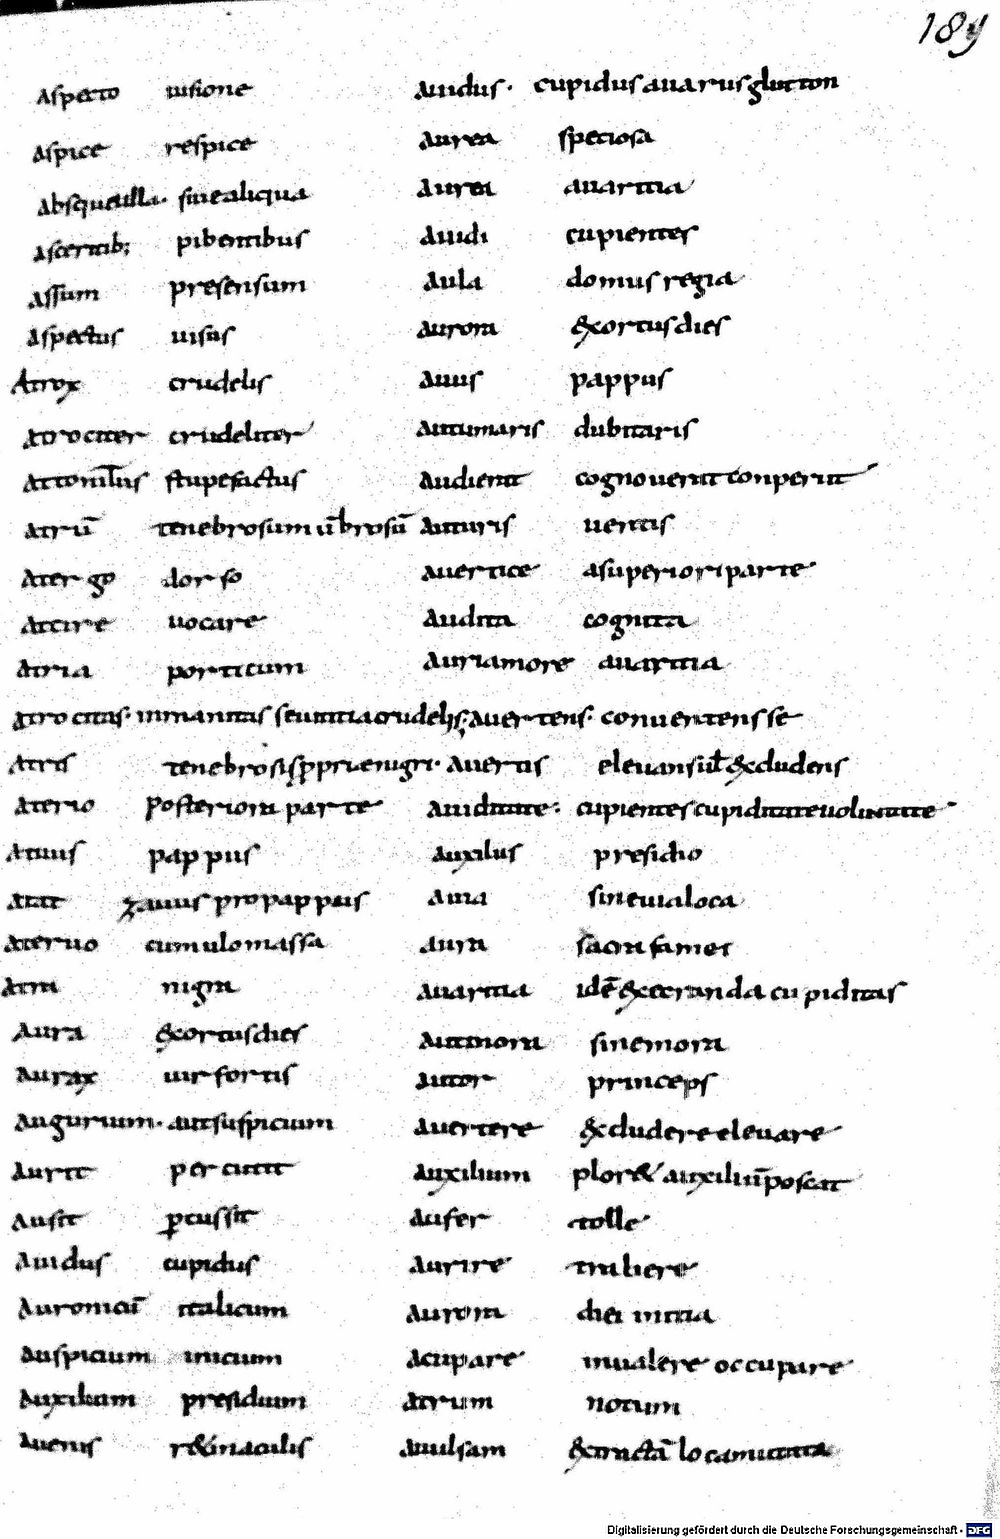 189
Aspecto uisione
Aspice respice
Absque ulla. sine aliqua
Ascentib; pibentibus
Assum presensum
Aspectus uisus
Atrox crudelis
Atrociter crudeliter
Attonitus stupefactus
Atrū tenebrosum ūbrosū
Atergo dorso
Atcire uocare
Atria porticum
Atrocitas. inmanitas seuitia crudelis.
Atris tenebrosis nigri.
Aterio posteriora parte
Atauus pappus
Atat auus propappus
Ateruo cumulo massa
Atra nigra
Aura &xortus dies
Aurax uir fortis
Augurium. aut suspicium
Aurit percutit
Ausit pcussit
Auidus cupidus
Auronicū italicum
Auspicium inicium
Auxilium presidium
Auenis r&inaculis
Auidus. cupidus auarus glutton
Aurea speciosa
Aurea auaritia
Auidi cupientes
Aula domus regia
Aurora &xortus dies
Auus pappus
Autumaris dubitaris
Audierit cognouerit conperit
Auturis uentis
Auertice a superiori parte
Audita cognita
Auri amore auaritia
Auertens. conuertens se
Auertis eleuans uł &xcludens
Auiditate. cupientes cupiditate uoluntate
Auxilus presidio
Auia sine uia loca
Aura sacra fames
Auaritia idē &xecranda cupiditas
Autmora sine mora
Autor princeps
Auertere &xcludere eleuare
Auxilium plor& auxiliū poscat
Aufer tolle
Aurire trahere
Aurora diei initia
Acupare inualere occupare
Atrum notum
Auulsam &xtractā loca mutata
Digitalisierung gefördert durch die Deutsche Forschungsgemeinschaft - DFG